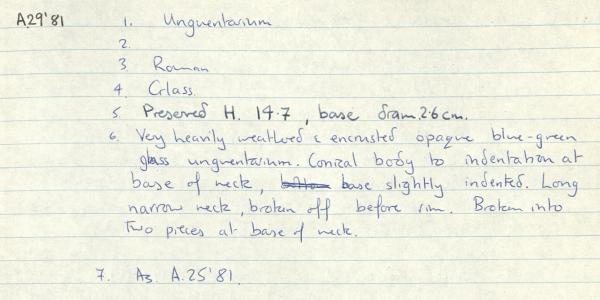 A.29'81 1. Unguentarium
2.
3. Roman
4. Glass.
5. Preserved H. 14.7, base diam. 2.6 cm.
6. Very heavily weathered & encrusted opaque blue-green
glass unguentarium. Conical body to indentation at
base of neck, bottom base slightly indented. Long
narrow neck, broken off before rim. Broken into
two pieces at base of neck.
7. As A.25'81.